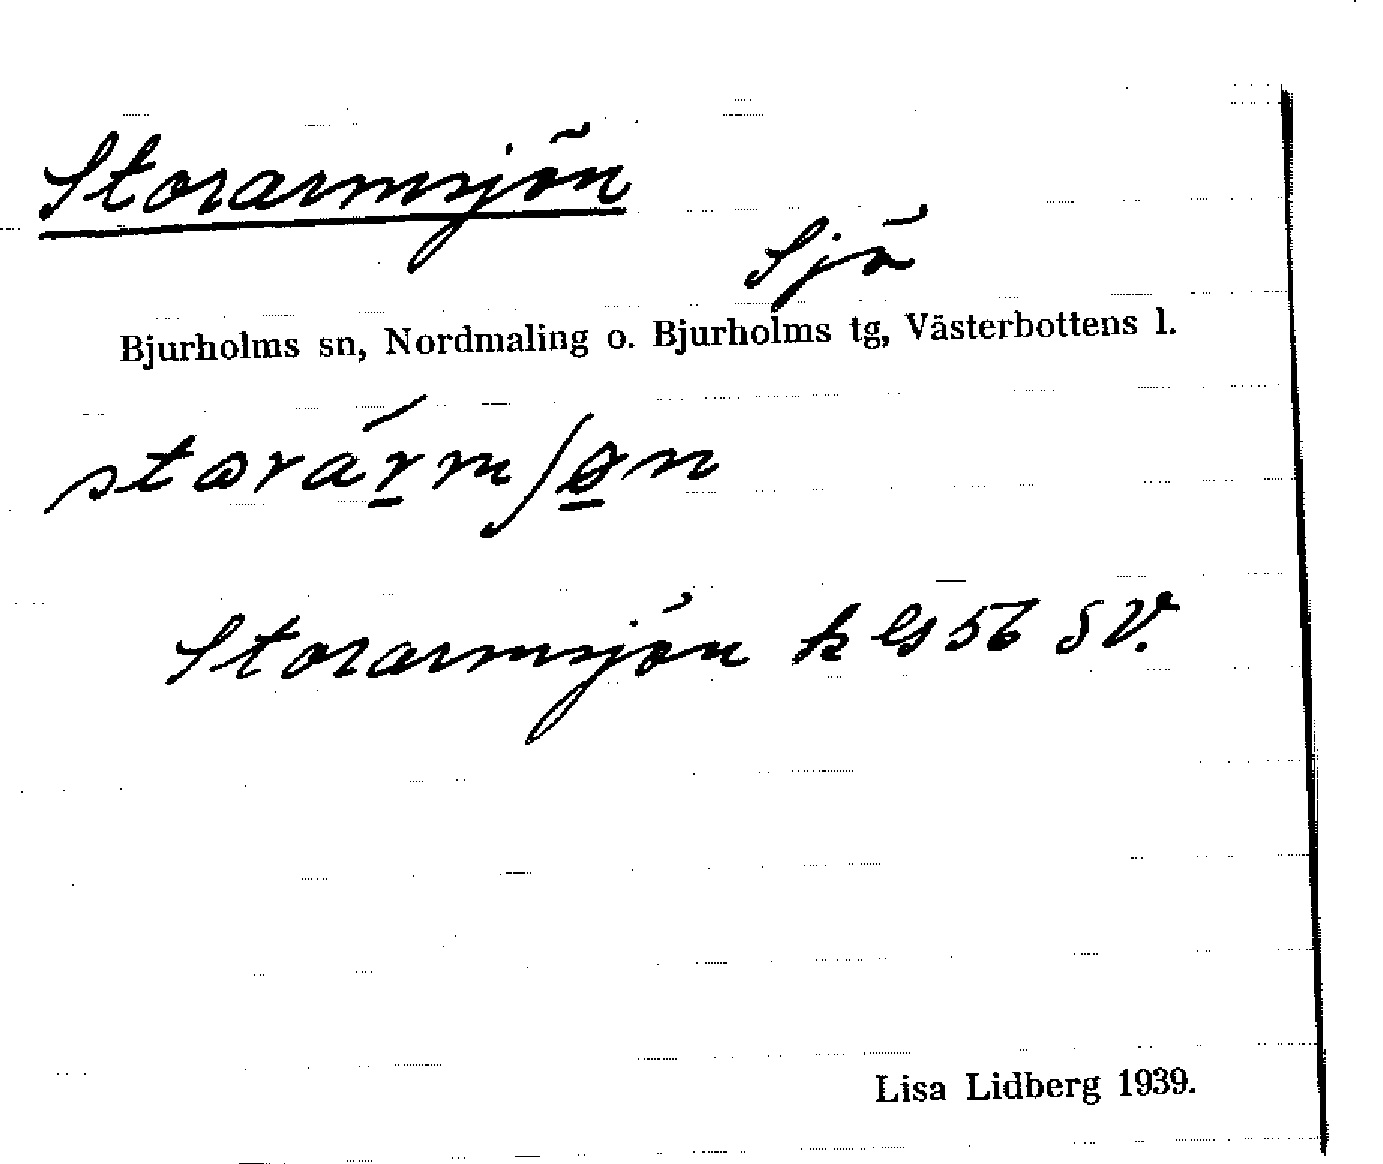 Storarmsjön
Sjö
Bjurholms sn, Nordmaling o. Bjurholms tg, Västerbottens l.
Storarmsjön k bl 56 SV.
Lisa Lidberg 1939.